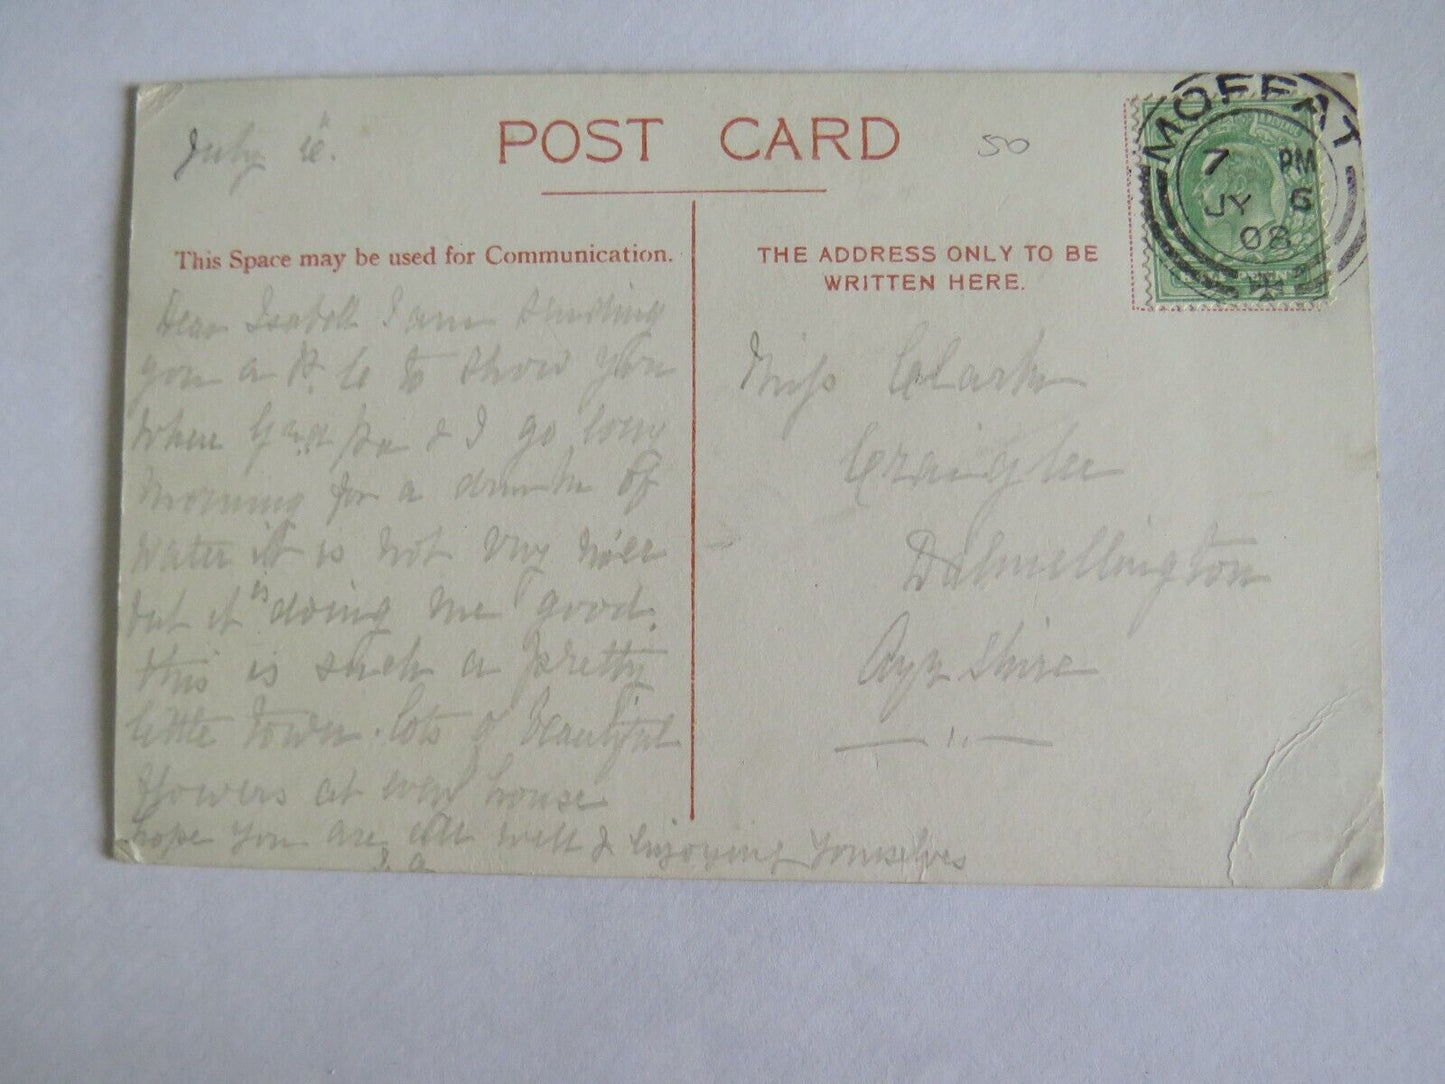 July 6".
POST CARD
50
MOFFAT
7 PM
JY 6
08
This Space may be used for Communication.
THE ADDRESS ONLY TO BE
WRITTEN HERE.
Dear Isabell I am sending
you a P. C to show you
where Grd pa & I go every
morning for a drink of
water it is not very nice
but it is doing me good.
this is such a pretty
little town. lots of beautiful
flowers at every house
hope you are all well & enjoying yourselves
Miss Clark
Craiglea
Dalmellington
Ayr Shire